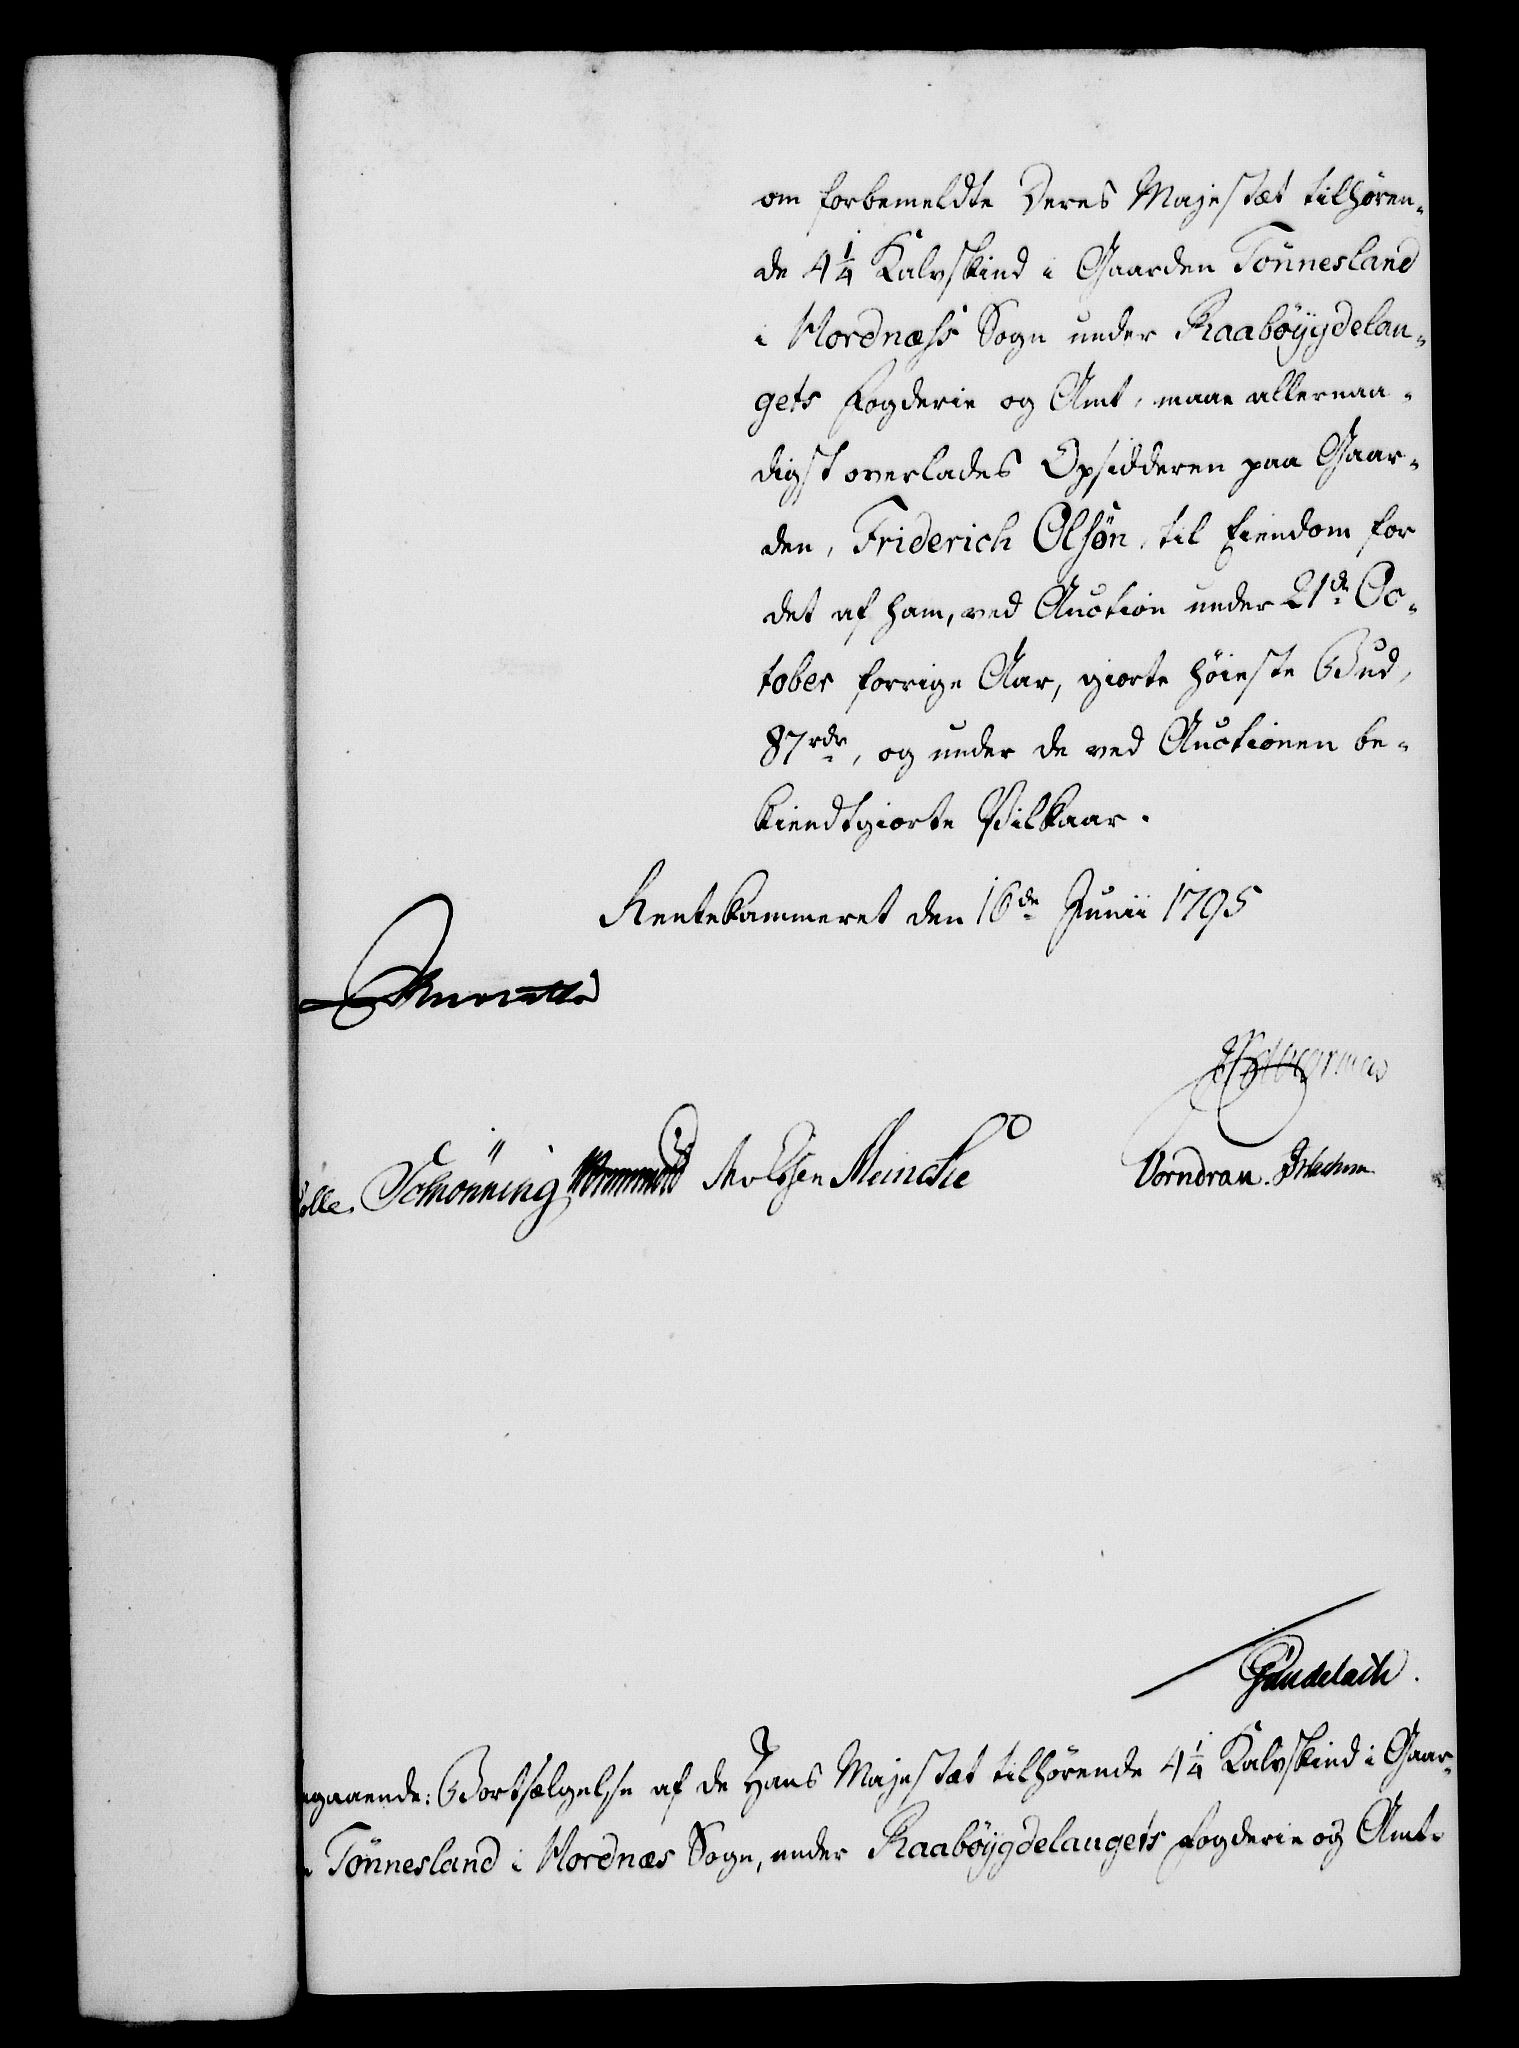 om forbemeldte Deres Majestæt tilhören-
de 4 1/4 Kalvskind i Gaarden Tönnesland
i Hordnæss Sogn under Raabøygdelau-
gets Fogderie og Amt, maae allernaa-
digst overlades Opsidderen paa Gaar-
den, Friderich Olsøn, til Eiendom for
det af ham, ved Auction under 21de Oc-
tober forrige Aar, giorte höieste Bud,
87 rdr, og under de ved Auctionen be-
kiendtgiorte Vilkaar.
Rentekammeret den 16de Junii 1795
Schönning Wormskiold Meincke
Vorndran.
Gündelach.
gaaende: Bortsælgelse af de Hans Majestæt tilhørende 4 1/4 Kalvskind i Gaar-
Tønnesland i Hordnæs Sogn, under Raabøygdelaugets Fogderie og Amt.